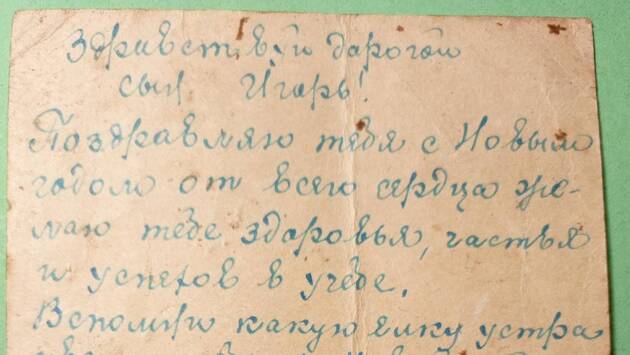 Здравствуй дарогой
сын Игорь!
Поздравляю тебя с Новым
годом от всего сердца же-
лаю тебе здоровья, частья
и успехов в учёбе.
Вспомни какую ёлку устра